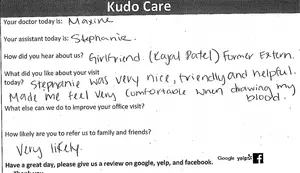 Kudo Care
Your doctor today is: Maxine
Your assistant today is: Stephanie
How did you hear about us? Girlfriend. (Kajal Patel) Former Extern.
What did you like about your visit
today? Stephanie was very nice, friendly and helpful.
Made me feel very comfortable when drawing my
blood.
What else can we do to improve your office visit?
How likely are you to refer us to family and friends?
Very likely.
Google yelp f
Have a great day, please give us a review on google, yelp, and facebook.
Thank you